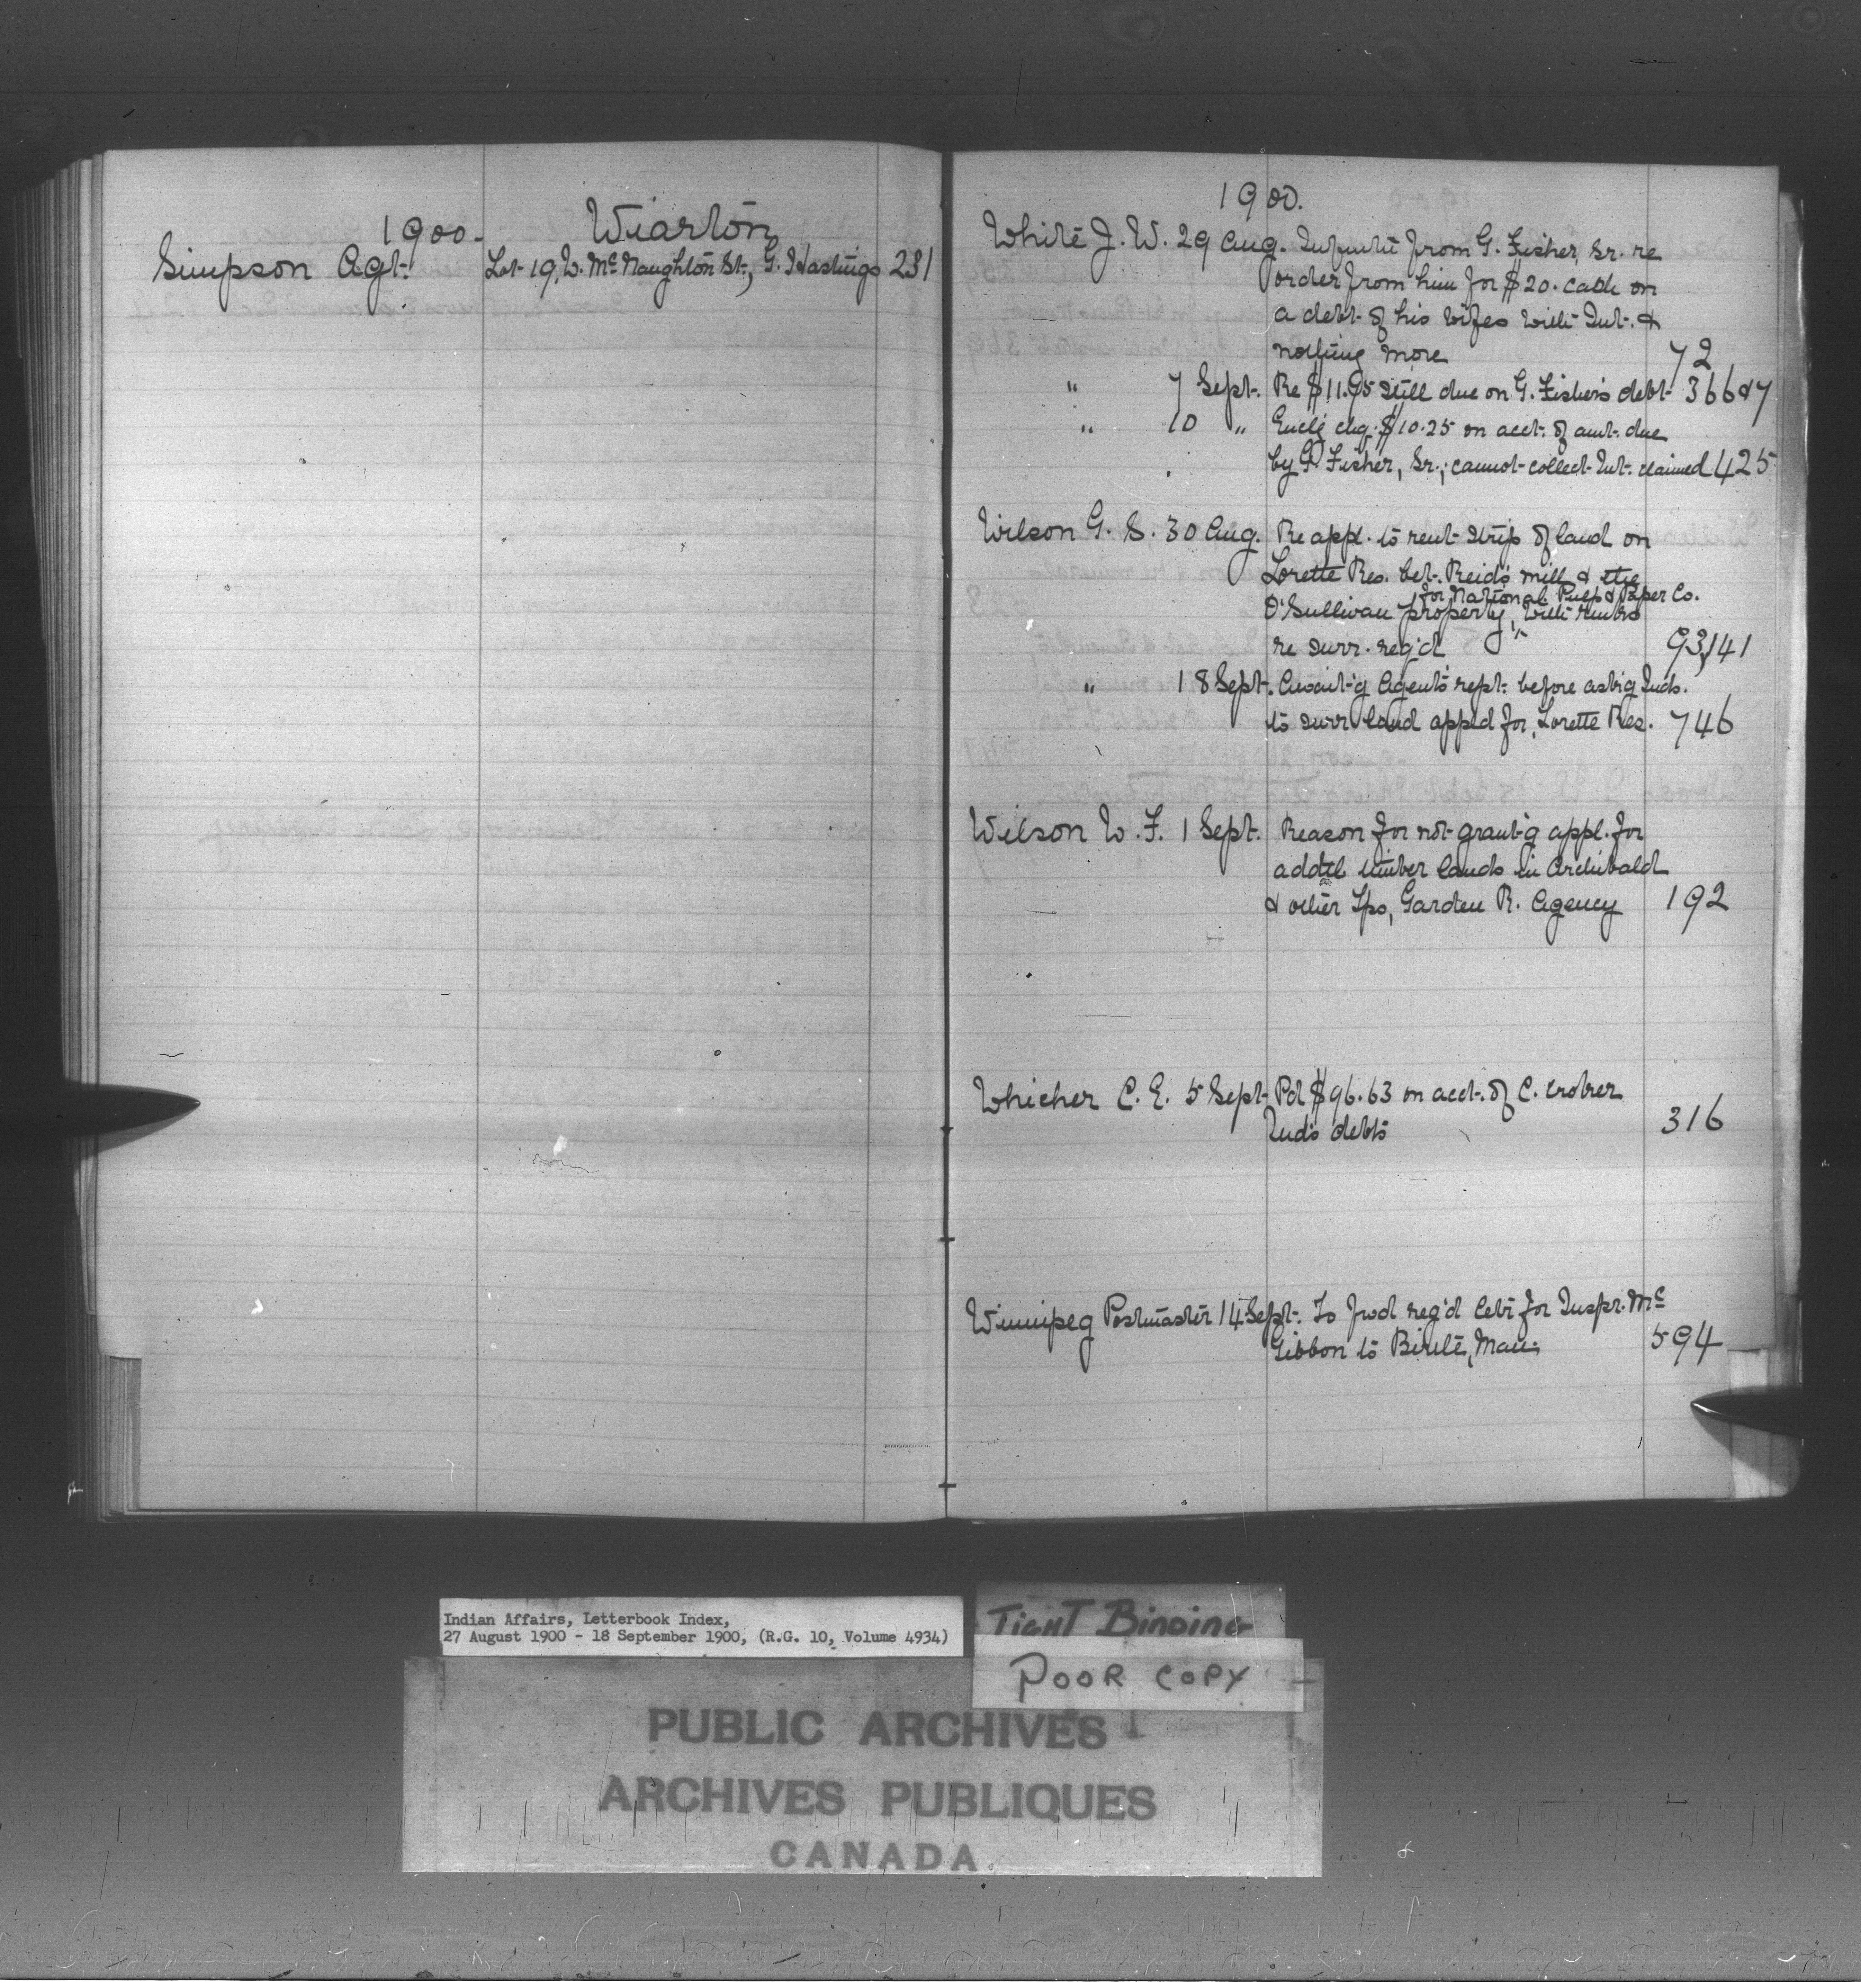 1900- Wiarton
Simpson Agt. Lot 19, W. McNaughton St., G. Hastings 231
1900.
White J. W. 29 Aug. from G. Fisher, Sr. re
order from him for $20. cash on
a debt of his wifes with Int. &
nothing more 72
" 7 Sept. Re $11.95 still due on G. Fisher's debt 366&7
" 10 " Encl'g chq. $10.25 on acct. of amt. due
by G. Fisher, Sr.; cannot collect Int. claimed 425
Wilson G. S. 30 Aug. Re appl. to rent strip of land on
Lorette Res. bet. Reid's mill & the
for National Pulp & Paper Co.
O'Sullivan property, with
re surr. req'd 93,141
" 18 Sept. Await'g Agent's rept. before ask'g Inds.
to surr land appld for, Lorette Res. 746
Wilson W. F. 1 Sept. Reason for not grant'g appl. for
addtl timber lands in Archibald
& other Tps, Garden R. Agency 192
Whicher C. E. 5 Sept. Pd $96.63 on acct. of C. Croker
Ind's debts 316
Winnipeg Postmaster 14 Sept. To fwd reg'd letr for Inspr. Mc
Gibbon to Birtle, Man. 594
Indian Affairs, Letterbook Index,
27 August 1900 - 18 September 1900, (R.G. 10, Volume 4934)
TIGHT BINDING
POOR COPY
PUBLIC ARCHIVES
ARCHIVES PUBLIQUES
CANADA